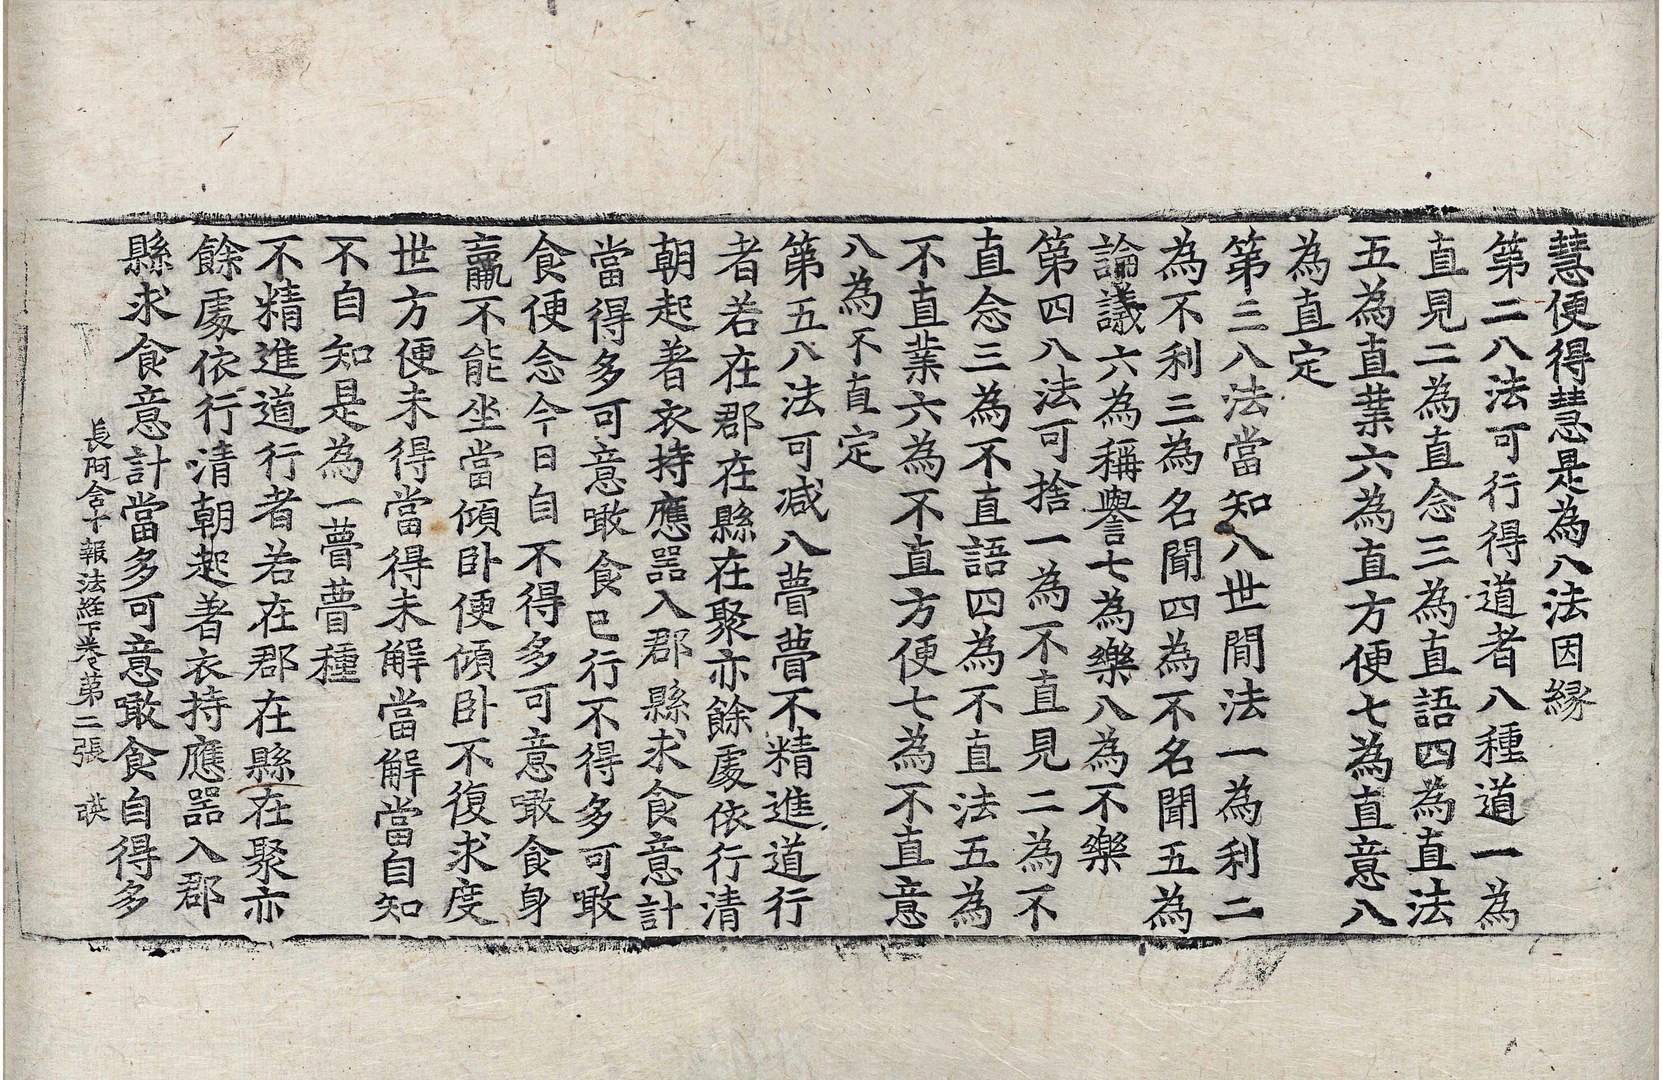 慧便得慧是為八法因緣
第二八法可行得道者八種道一為
直見二為直念三為直語四為直法
五為直業六為直方便七為直意八
為直定
第三八法當知八世間法一為利二
為不利三為名聞四為不名聞五為
論議六為稱譽七為樂八為不樂
第四八法可捨一為不直見二為不
直念三為不直語四為不直法五為
不直業六為不直方便七為不直意
八為不直定
第五八法可減八瞢瞢不精進道行
者若在郡在縣在聚亦餘處依行清
朝起著衣持應噐入郡縣求食意計
當得多可意噉食已行不得多可噉
食便念今日自不得多可意噉食身
羸不能坐當傾卧便傾卧不復求度
世方便未得當得未解當解當自知
不自知是為一瞢瞢種
不精進道行者若在郡在縣在聚亦
餘處依行清朝起著衣持應噐入郡
縣求食意計當多可意噉食自得多
長阿含十報法經下卷第二張 暎